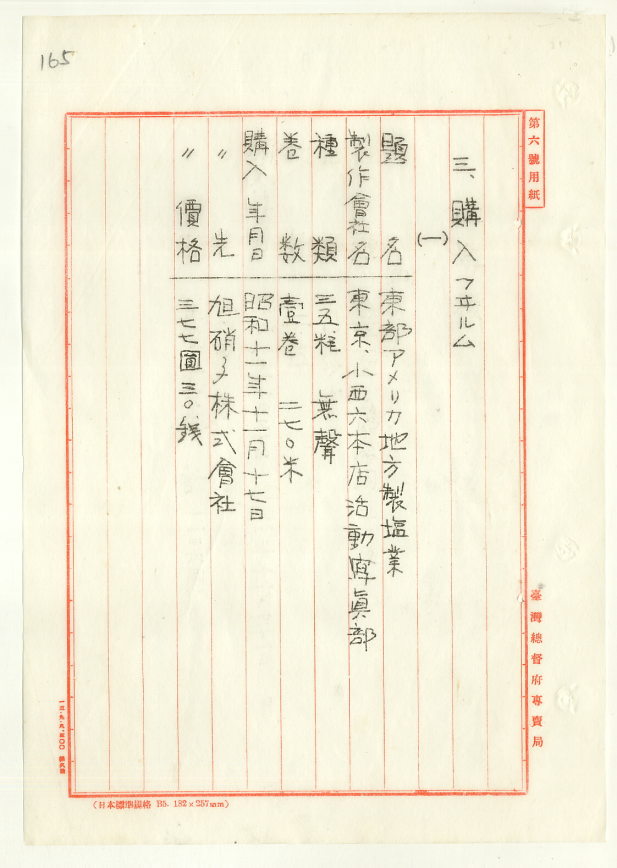 165
第六號用紙
三、購入フヰルム
(一)
題名 東部アメリカ地方製塩業
製作會社名 東京、小西六本店活動寫眞部
種類 三五粍 無聲
巻数 壹巻 二七〇米
購入年月日 昭和十一年十一月十七日
〃先 旭硝子株式會社
〃價格 三七七圓三〇錢
臺灣總督府專賣局
(日本標準規格 B5. 182×257mm)